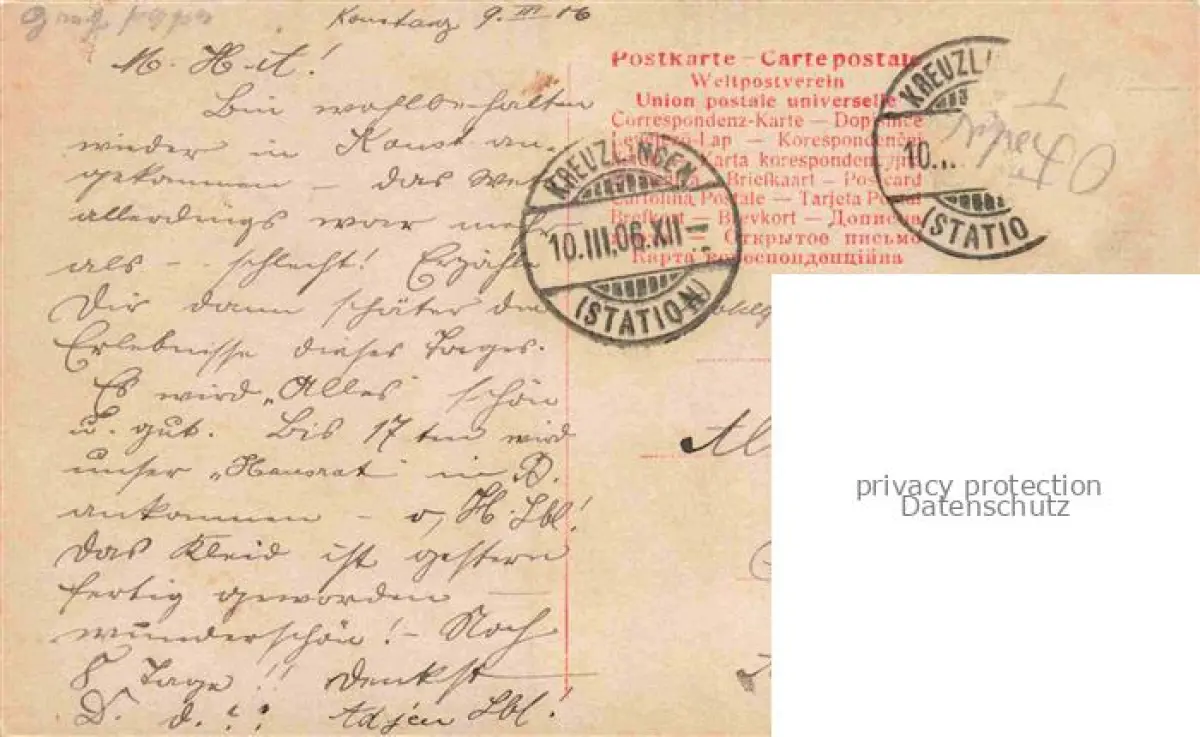 Konstanz 9. III 06
M. H-it!
Bin wohlbehalten
wieder in Konst an-
gekommen – das Wet
allerdings war mehr
als – schlecht! Erzähle
Dir dann später die
Erlebnisse dieses Tages.
Es wird „Alles" schön
u. gut. Bis 17ten wird
unser „Hausrat" in D.
ankommen – o, H. Lbl!
Das Kleid ist gestern
fertig geworden –
wunderschön! – Noch
8 Tage!! Denkst
D. d.?? Adjeu Lbl!
Postkarte – Carte postale
Weltpostverein
Union postale universelle
Correspondenz-Karte – Dopisnice
Levelező-Lap – Korespondenční
Karta korespondencyjna
Briefkaart – Postcard
Cartolina Postale – Tarjeta Postal
Brefkort – Brevkort – Дописна
Открытое письмо
Карта кореспонденційна
KREUZLINGEN
10.III.06.XII
(STATION)
KREUZLI
10.
(STATIO
privacy protection
Datenschutz